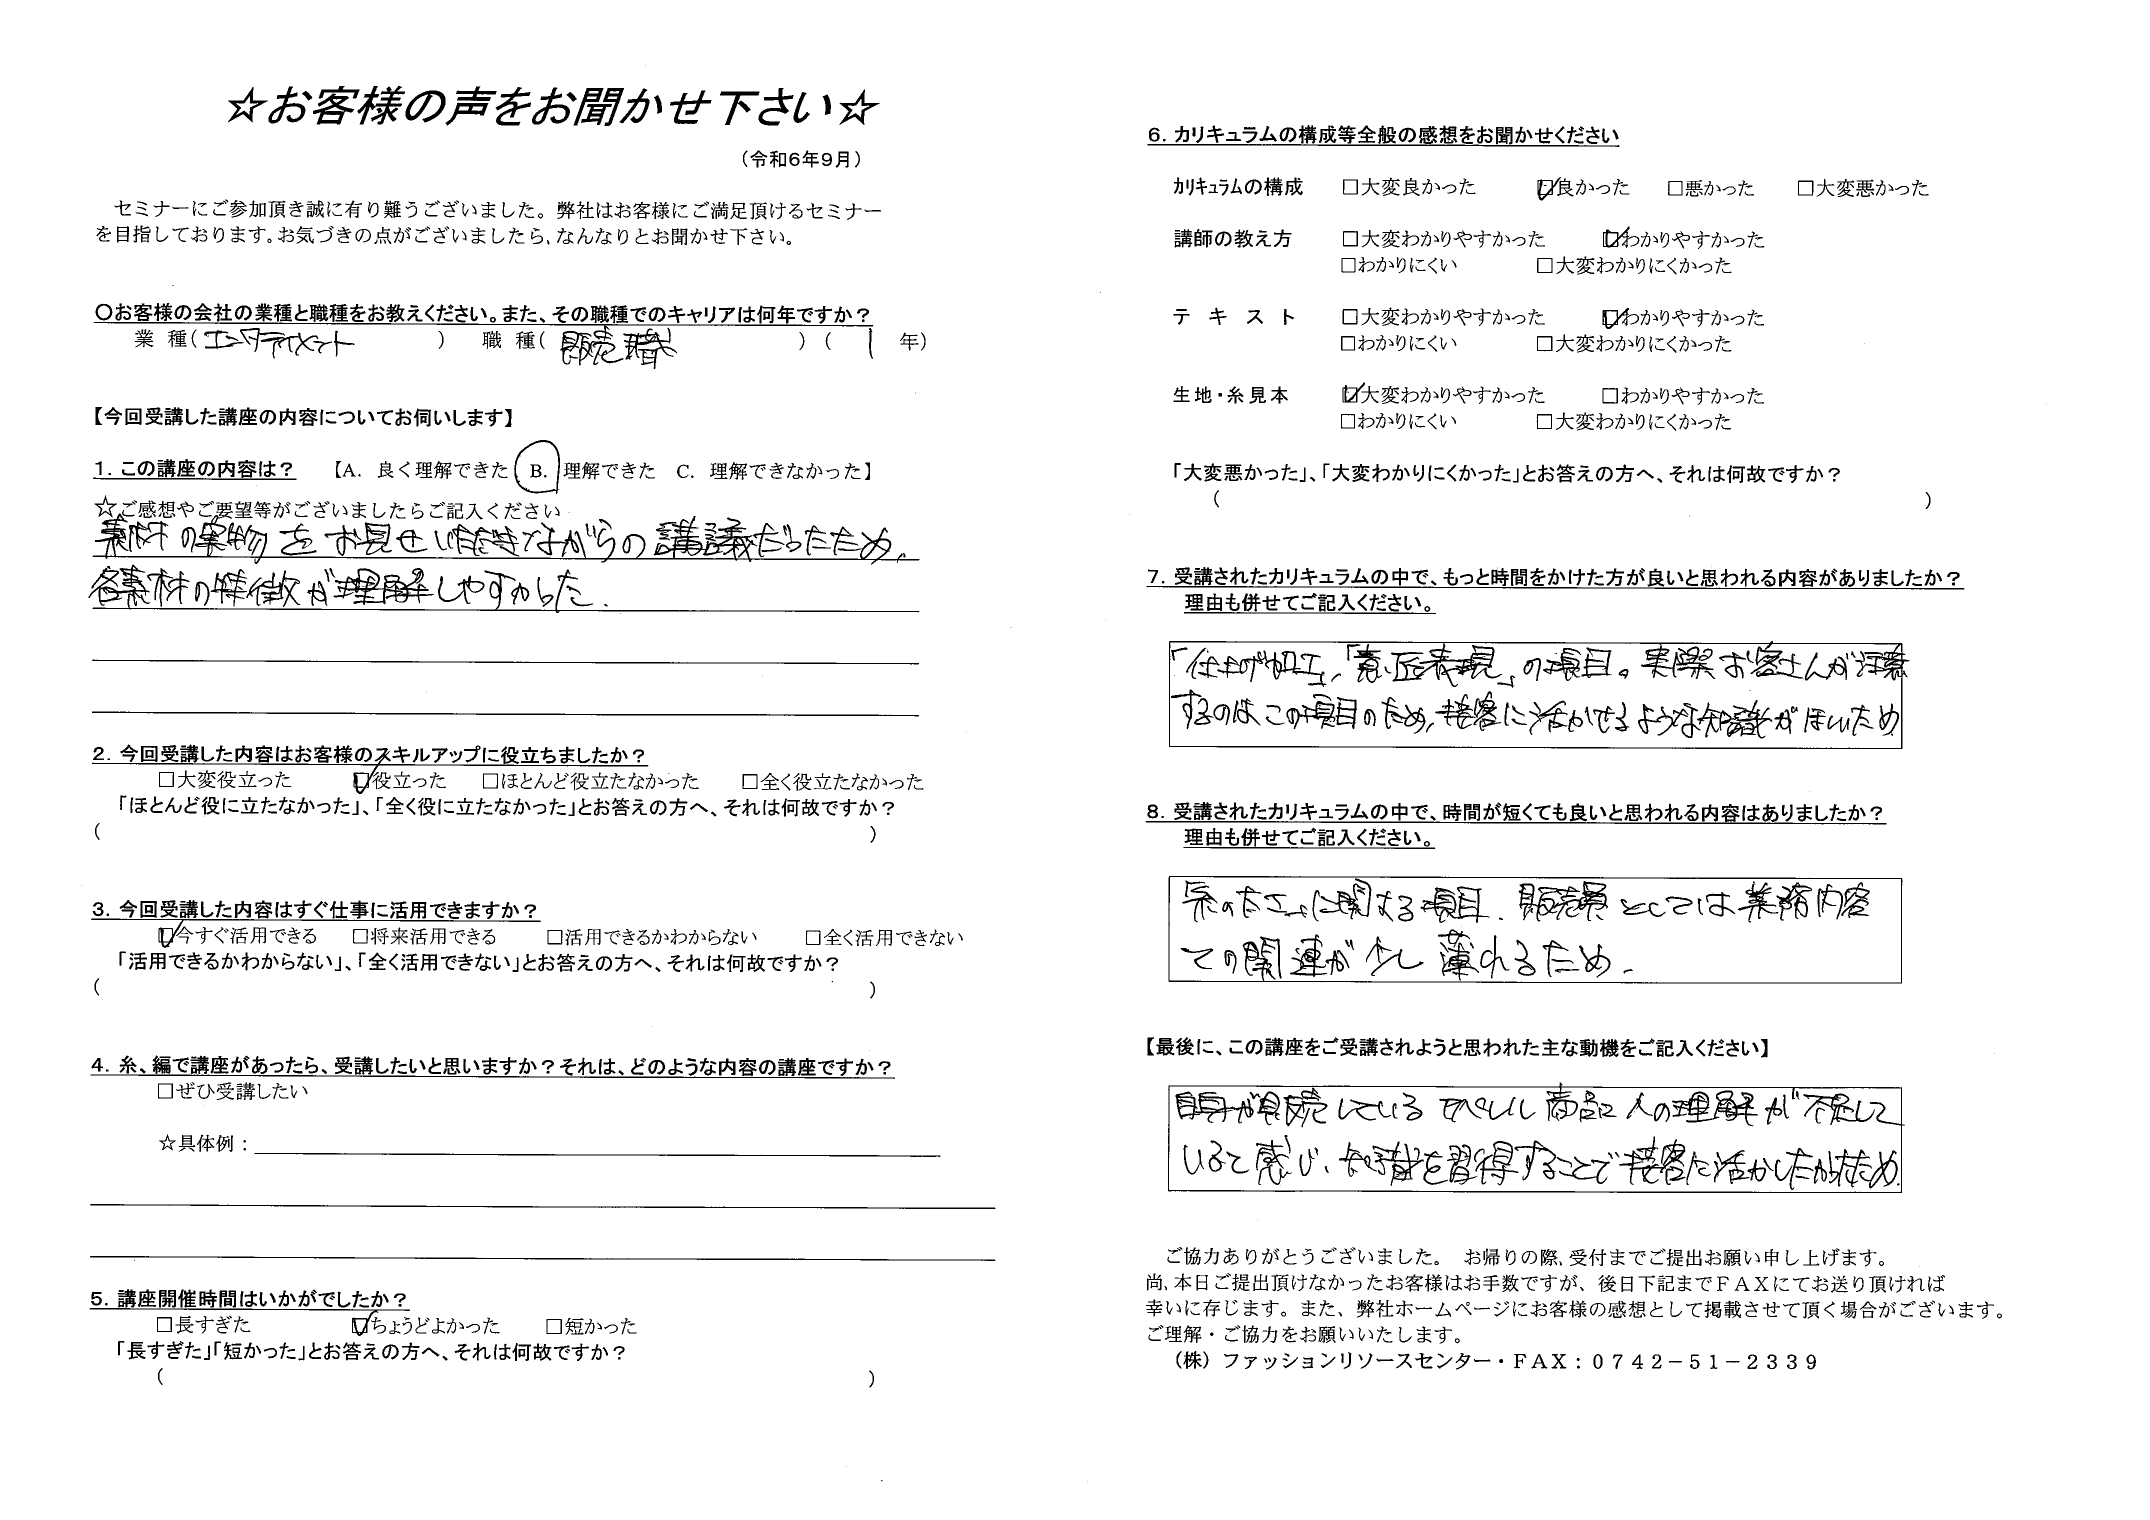 ☆お客様の声をお聞かせ下さい☆
（令和6年9月）
セミナーにご参加頂き誠に有り難うございました。弊社はお客様にご満足頂けるセミナー
を目指しております。お気づきの点がございましたら、なんなりとお聞かせ下さい。
〇お客様の会社の業種と職種をお教えください。また、その職種でのキャリアは何年ですか？
業 種（エンタテイメント） 職 種（販売職）（ 1 年）
【今回受講した講座の内容についてお伺いします】
1. この講座の内容は？ 【A. 良く理解できた B. 理解できた C. 理解できなかった】
☆ご感想やご要望等がございましたらご記入ください
素材の実物をお見せいただきながらの講議だったため、
各素材の特徴が理解しやすかった.
2. 今回受講した内容はお客様のスキルアップに役立ちましたか？
□大変役立った ☑役立った □ほとんど役立たなかった □全く役立たなかった
「ほとんど役に立たなかった」、「全く役に立たなかった」とお答えの方へ、それは何故ですか？
（ ）
3. 今回受講した内容はすぐ仕事に活用できますか？
☑今すぐ活用できる □将来活用できる □活用できるかわからない □全く活用できない
「活用できるかわからない」、「全く活用できない」とお答えの方へ、それは何故ですか？
（ ）
4. 糸、編で講座があったら、受講したいと思いますか？それは、どのような内容の講座ですか？
□ぜひ受講したい
☆具体例：
5. 講座開催時間はいかがでしたか？
□長すぎた ☑ちょうどよかった □短かった
「長すぎた」「短かった」とお答えの方へ、それは何故ですか？
（ ）
6. カリキュラムの構成等全般の感想をお聞かせください
カリキュラムの構成 □大変良かった ☑良かった □悪かった □大変悪かった
講師の教え方 □大変わかりやすかった ☑わかりやすかった
□わかりにくい □大変わかりにくかった
テ キ ス ト □大変わかりやすかった ☑わかりやすかった
□わかりにくい □大変わかりにくかった
生地・糸見本 ☑大変わかりやすかった □わかりやすかった
□わかりにくい □大変わかりにくかった
「大変悪かった」、「大変わかりにくかった」とお答えの方へ、それは何故ですか？
（ ）
7. 受講されたカリキュラムの中で、もっと時間をかけた方が良いと思われる内容がありましたか？
理由も併せてご記入ください。
「仕上げ加工」,「意匠表現」の項目。実際お客さんが注意
するのはこの項目のため,接客に活かせるような知識がほしいため
8. 受講されたカリキュラムの中で、時間が短くても良いと思われる内容はありましたか？
理由も併せてご記入ください。
糸の太さに関する項目. 販売員としては業務内容
との関連が少し薄れるため.
【最後に、この講座をご受講されようと思われた主な動機をご記入ください】
自身が販売しているアパレル商品への理解が不足して
いると感じ、知識を習得することで接客に活かしたかったため.
ご協力ありがとうございました。 お帰りの際、受付までご提出お願い申し上げます。
尚、本日ご提出頂けなかったお客様はお手数ですが、後日下記までＦＡＸにてお送り頂ければ
幸いに存じます。また、弊社ホームページにお客様の感想として掲載させて頂く場合がございます。
ご理解・ご協力をお願いいたします。
（株）ファッションリソースセンター・ＦＡＸ：０７４２－５１－２３３９